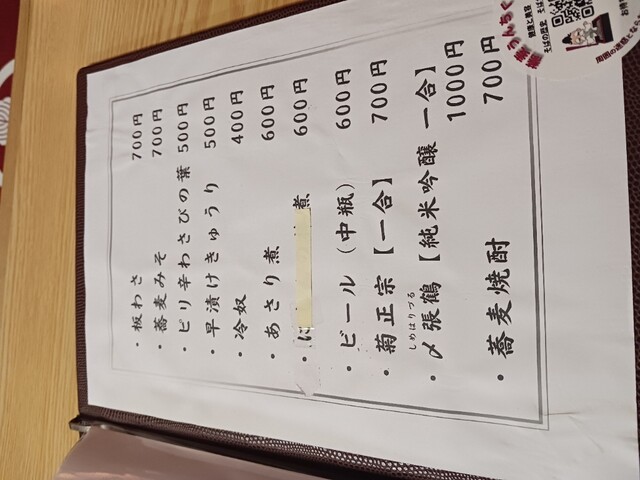 ・板わさ 700円
・蕎麦みそ 700円
・ピリ辛わさびの葉 500円
・早漬けきゅうり 500円
・冷奴 400円
・あさり煮 600円
・は 煮 600円
・ビール(中瓶) 600円
・菊正宗【一合】 700円
しめはりづる
・〆張鶴【純米吟醸 一合】 1000円
・蕎麦焼酎 700円
うんちく
健康と美容
そばの歴史